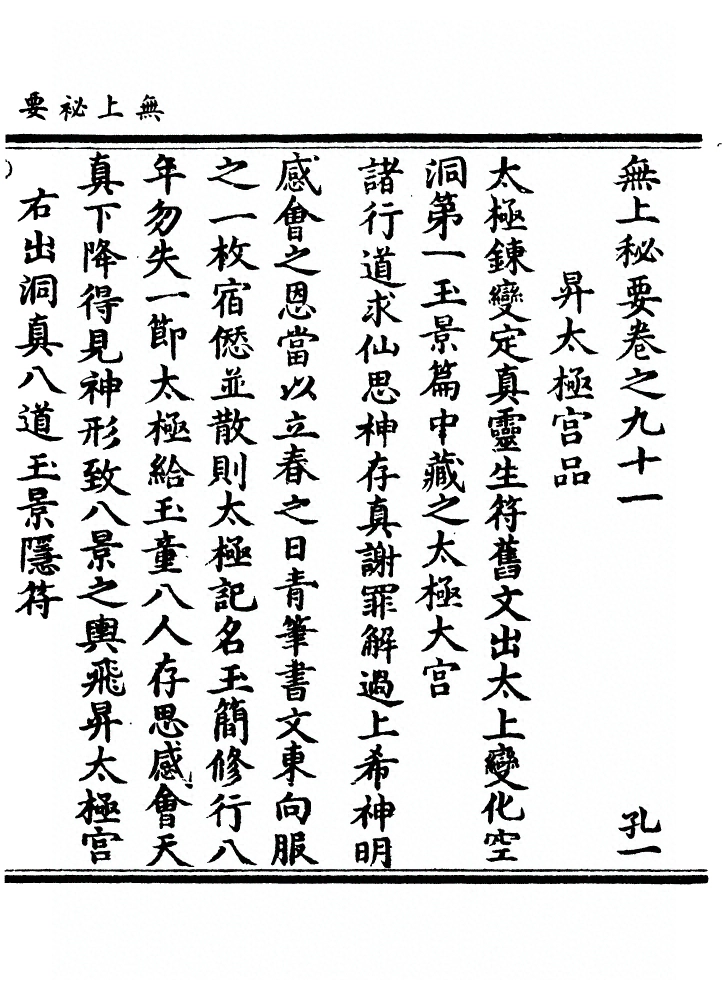 無上祕要
無上秘要卷之九十一 孔一
昇太極宮品
太極鍊變定真靈生符舊文出太上變化空
洞第一玉景篇中藏之太極大宮
諸行道求仙思神存真謝罪解過上希神明
感會之恩當以立春之日青筆書文東向服
之一枚宿愆並散則太極記名玉簡修行八
年勿失一節太極給玉童八人存思感會天
真下降得見神形致八景之輿飛昇太極宮
右出洞真八道玉景隱符